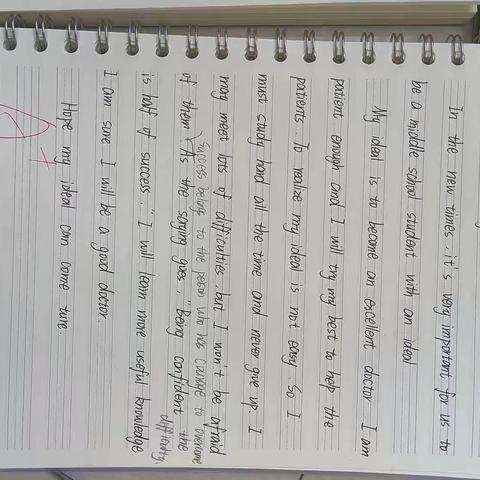 In the new times, it's very important for us to
be a middle school student with an ideal
My ideal is to become an excellent doctor I am
patient enough and I will try my best to help the
patients. To realize my ideal is not easy. So I
must study hard all the time and never give up. I
may meet lots of difficulties. but I won't be afraid
of them. As the saying goes, "Being confident
success belong to the person who has courage to overcome the difficulty.
is half of success." I will learn more useful knowledge.
I am sure I will be a good doctor.
Hope my ideal can come ture.
A+